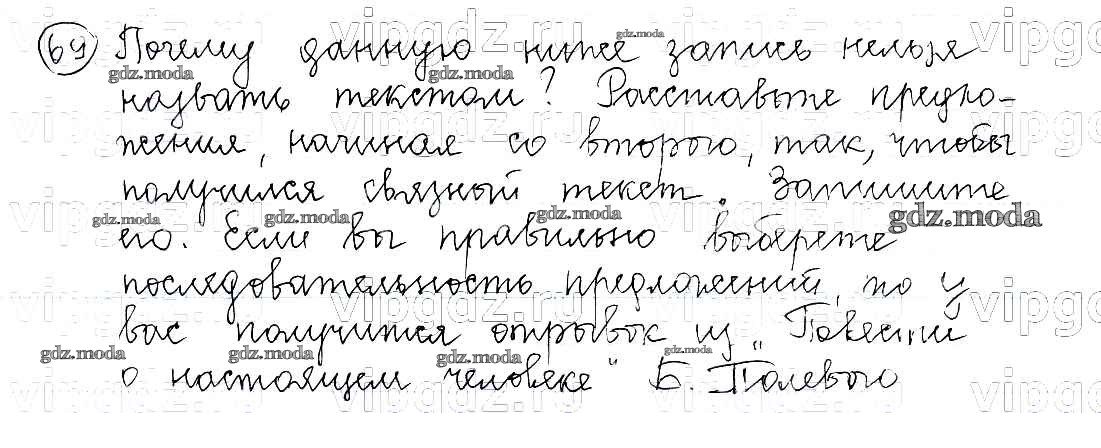 69 Почему данную ниже запись нельзя
назвать текстом? Расставьте предло-
жения, начиная со второго, так, чтобы
получился связный текст. Запишите
его. Если вы правильно выберете
последовательность предложений, то у
вас получится отрывок из „Повести
о настоящем человеке" Б. Полевого